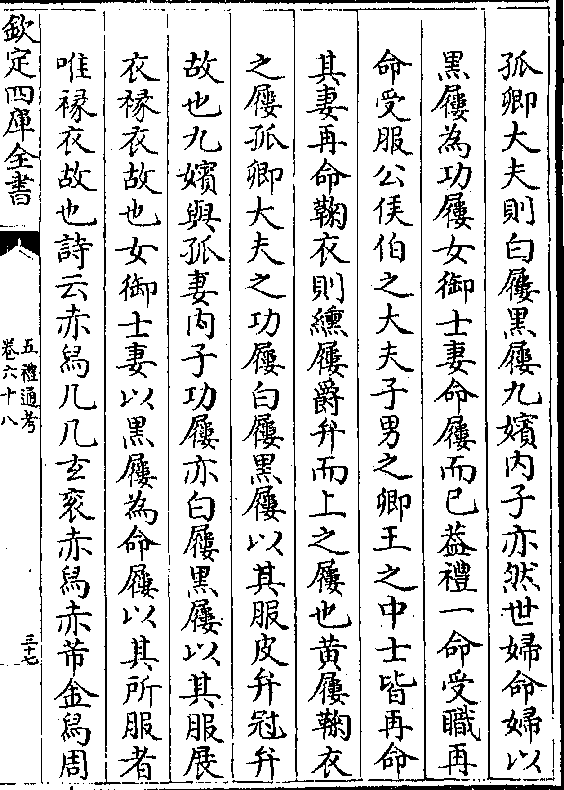 孤卿大夫則白屨黒屨九嬪内子亦然世婦命婦以
黒屨為功屨女御士妻命屨而已葢禮一命受職再
命受服公侯伯之大夫子男之卿王之中士皆再命
其妻再命鞠衣則纁屨爵弁而上之屨也黄屨鞠衣
之屨孤卿大夫之功屨白屨黒屨以其服皮弁冠弁
故也九嬪與孤妻内子功屨亦白屨黒屨以其服展
衣褖衣故也女御士妻以黒屨為命屨以其所服者
唯褖衣故也詩云赤舄几几玄衮赤舄赤芾金舄周
欽定四庫全書
五禮通考
卷六十八
三十七